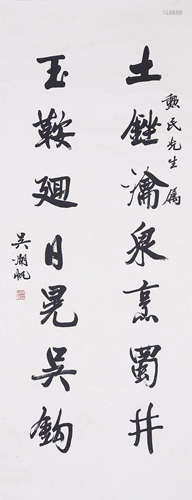 土銼瀹泉烹蜀井
民先生屬
玉鞍廻日晃吳鉤
吳湖帆